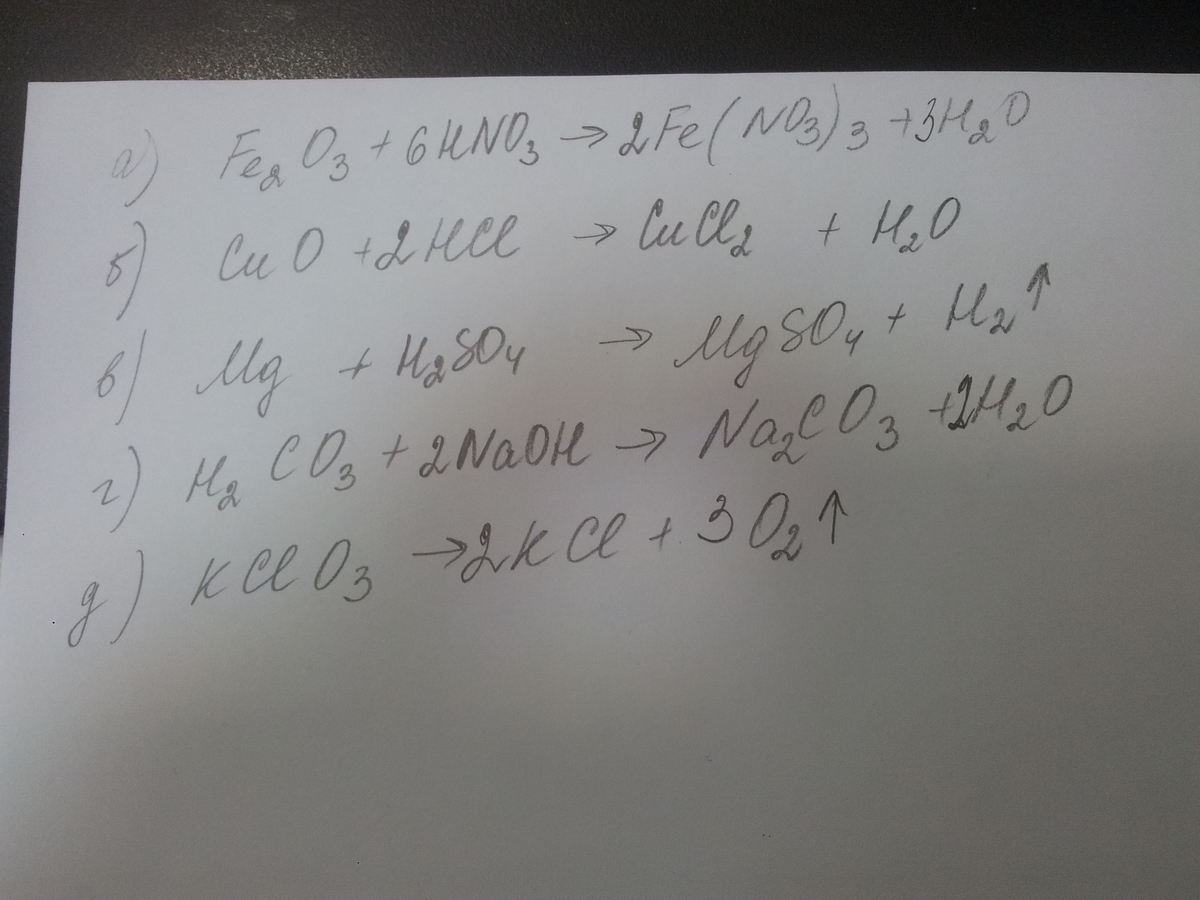 а) Fe₂O₃ + 6HNO₃ → 2Fe(NO₃)₃ + 3H₂O
б) CuO + 2HCl → CuCl₂ + H₂O
в) Mg + H₂SO₄ → MgSO₄ + H₂↑
г) H₂CO₃ + 2NaOH → Na₂CO₃ + 2H₂O
д) KClO₃ → 2KCl + 3O₂↑